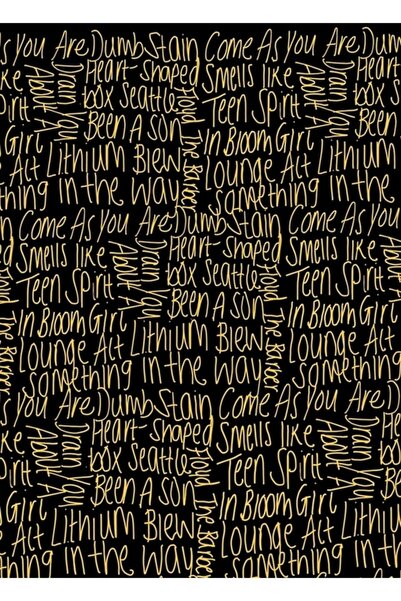 As You Are Dumb Stain Come As You Are Dumb
Heart-shaped Smells like Heart-
Drain You About A
box Seattle Teen Spirit box
Floyd The Barber
Been A son In Bloom Girl Been A
Lithium Blew Lounge Act Lithium
thing in the way something in the
Come As You Are Dumb Stain Come As You
Smells like Heart-shaped Smells like
Drain You About A
Teen Spirit box Seattle Teen Spirit
Floyd The Barber
In Bloom Girl Been A son In Bloom Girl
Lounge Act Lithium Blew Lounge Act
something in the way something
As You Are Dumb Stain Come As You Are Dumb
Heart-shaped Smells like Heart-
Drain You About A
box Seattle Teen Spirit box
Floyd The Barber
Been A son In Bloom Girl Been A
Act Lithium Blew Lounge Act Lithium
thing in the way something in the